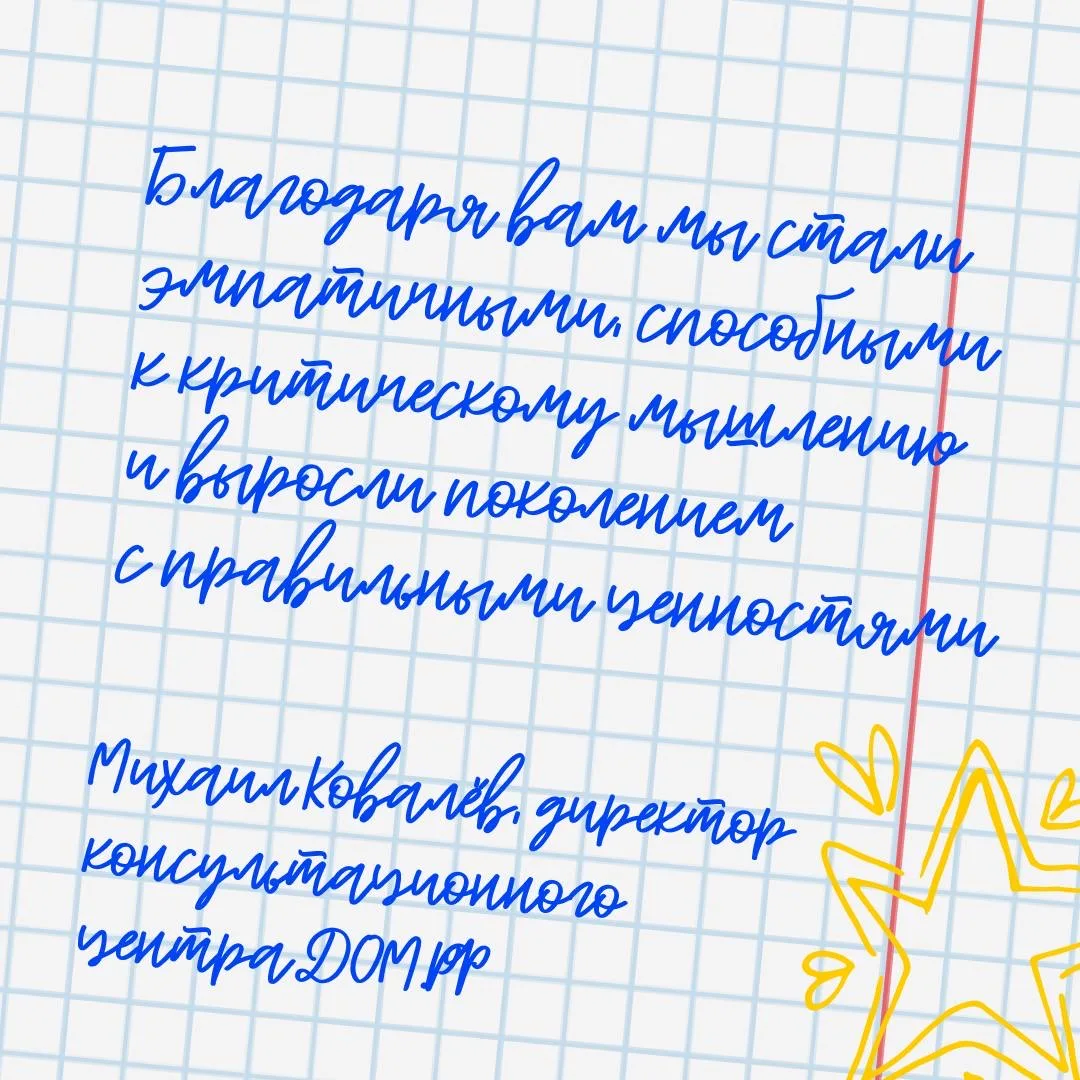 Благодаря вам мы стали
эмпатичными, способными
к критическому мышлению
и выросли поколением
с правильными ценностями
Михаил Ковалёв, директор
консультационного
центра ДОМ.рф